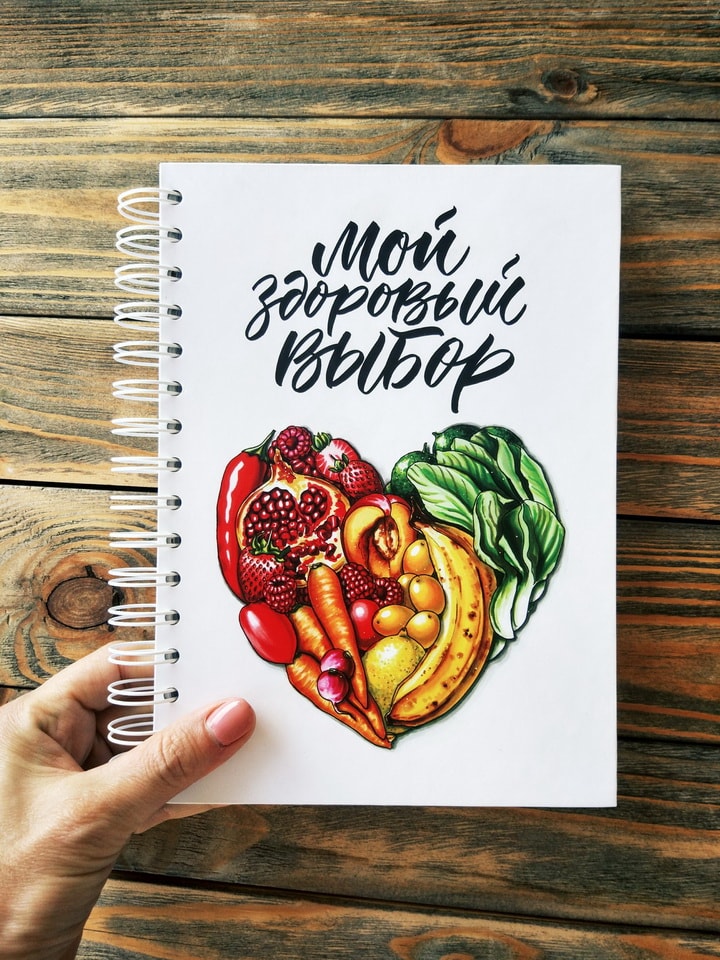 Мой
здоровый
выбор